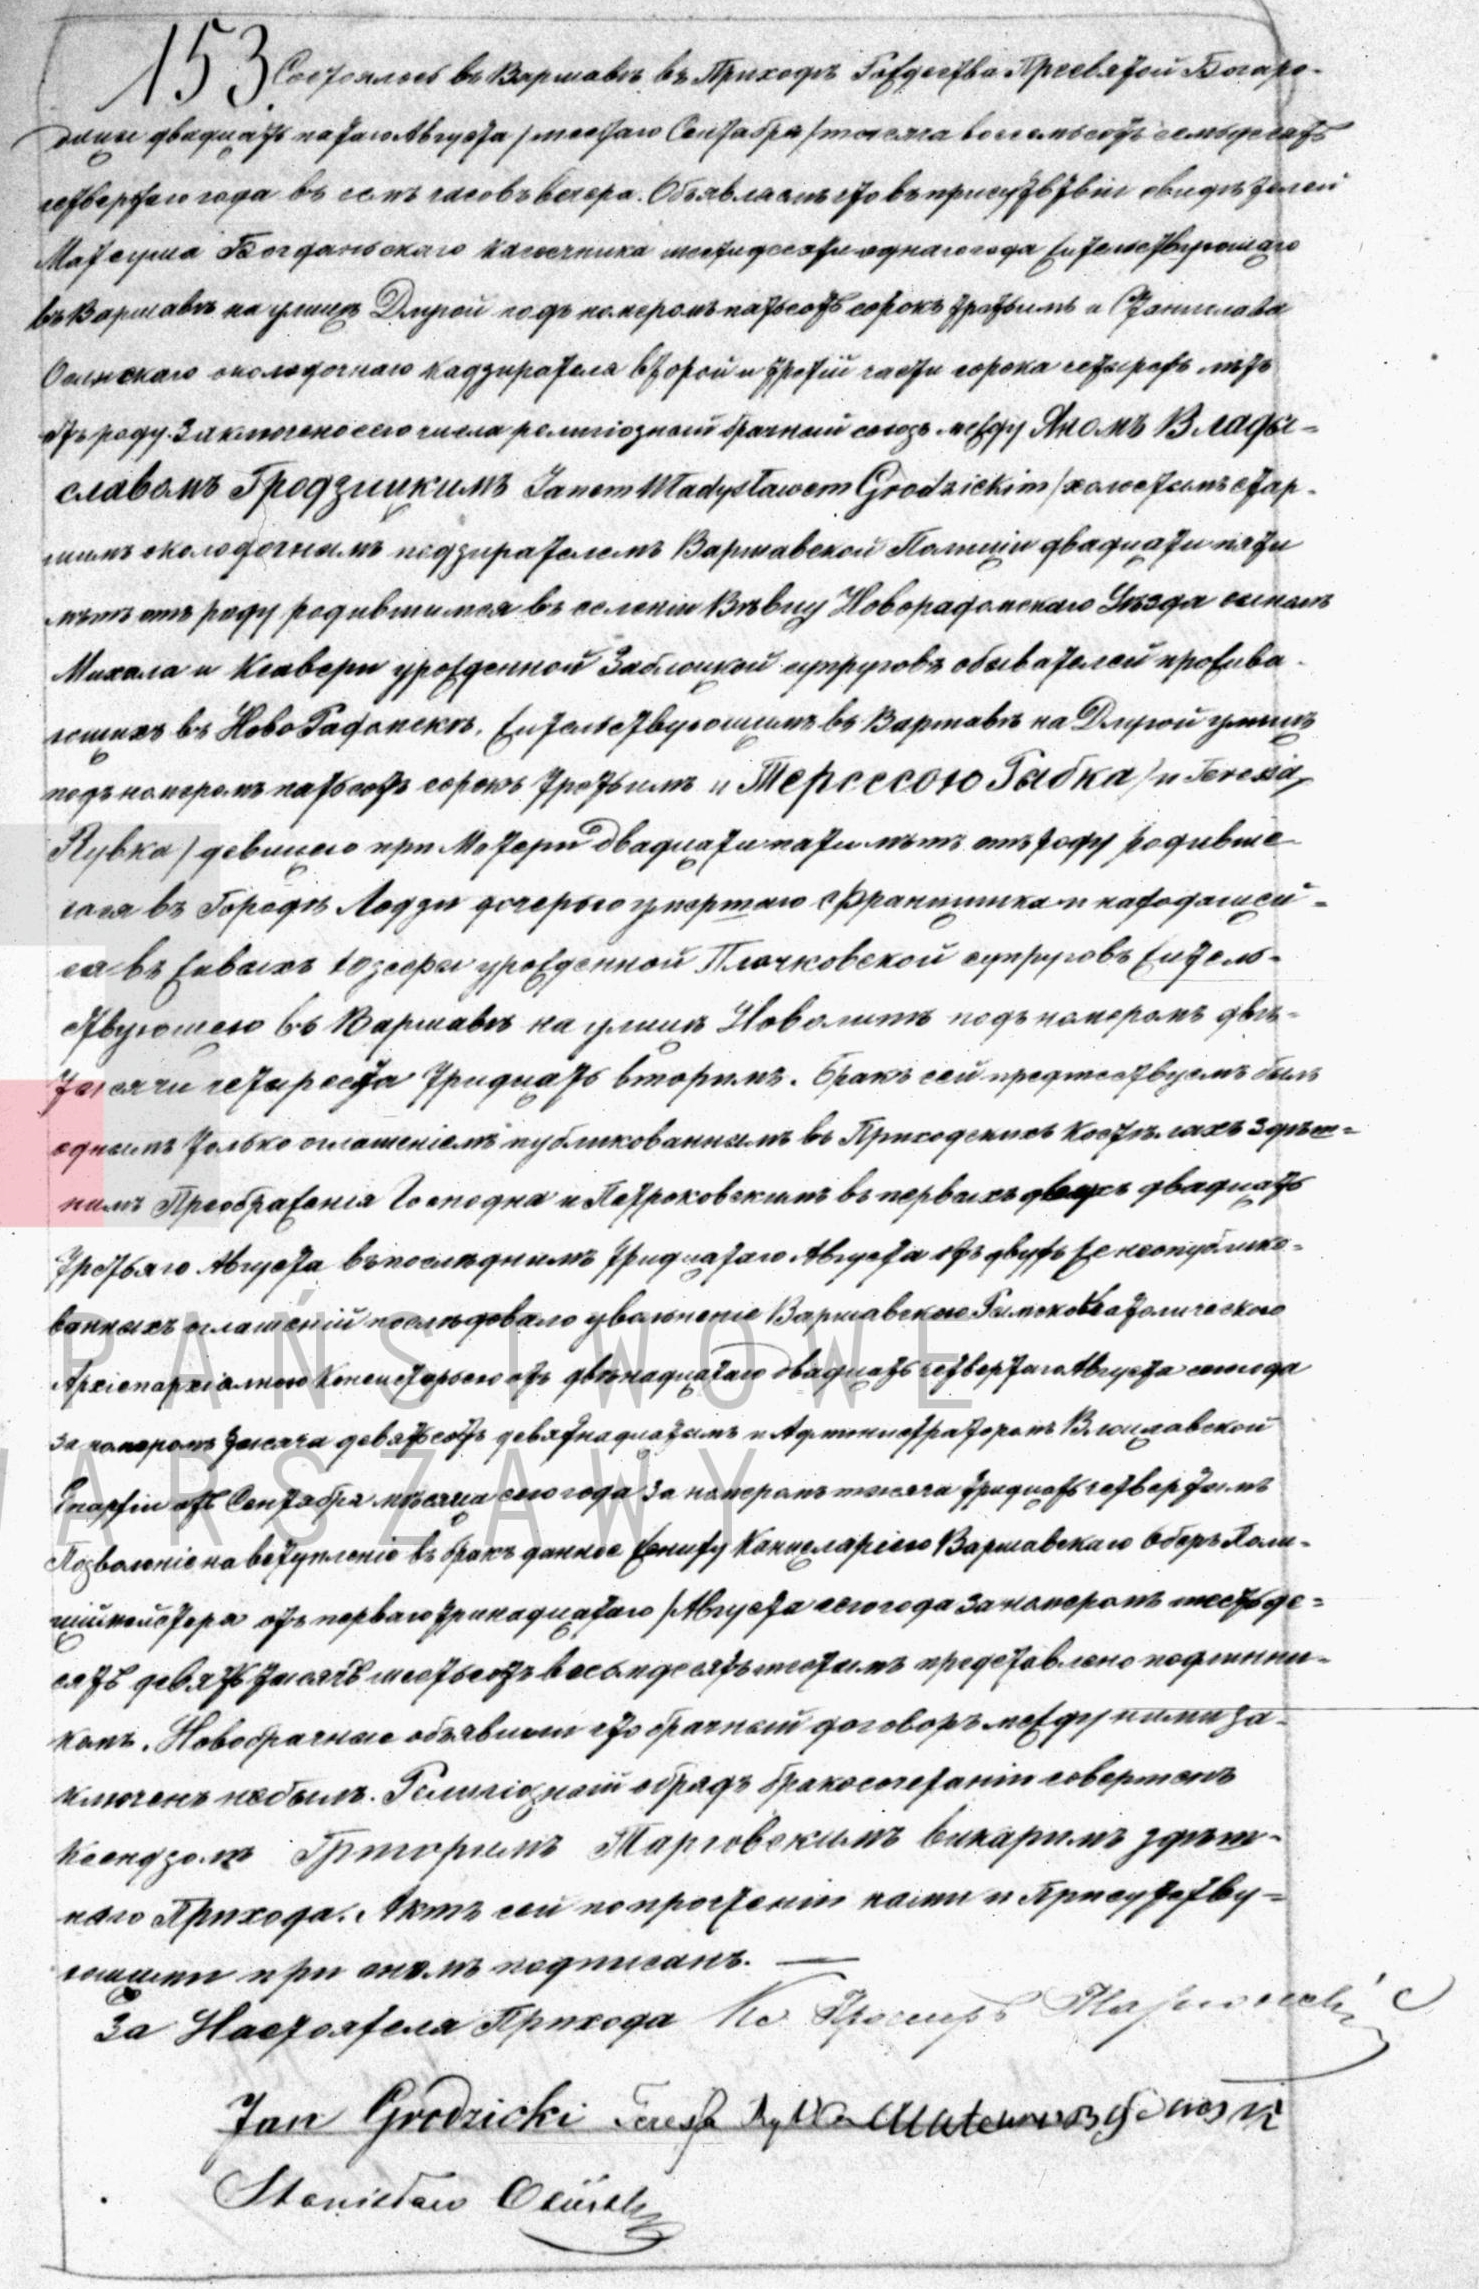 153. Состоялось въ Варшавѣ въ Приходѣ Рождества Пресвятой Богаро-
дицы двадцать пятаго Августа / шестаго Сентября / тысяча восемьсотъ семьдесятъ
четвертаго года въ семь часовъ вечера. Объявляемъ что въ присутствіи свидѣтелей
Матеуша Богданьскаго каменчника шестидесяти однаго года жительствующаго
въ Варшавѣ на улицѣ Длугой подъ номеромъ пятьсотъ сорокъ третьимъ и Станислава
Осинскаго околодочнаго надзирателя второй и третій части сорока четырехъ лѣтъ
отъ роду. Заключено сего числа религіозный брачный союзъ между Яномъ Влады-
славомъ Гродзицкимъ Janem Władysławem Grodzickim / холостымъ стар-
шимъ околодочнымъ надзирателемъ Варшавской Полиціи двадцати пяти
лѣтъ отъ роду родившимся въ селеніи Новорадомскаго Уѣзда сыномъ
Михала и Ксавери урожденной Заблоцкой супруговъ обывателей прожива-
ющихъ въ Ново Радомскѣ, жительствующимъ въ Варшавѣ на Длугой улицѣ
подъ номеромъ пятьсотъ сорокъ третьимъ и Терессою Рыбка / и Teresią
Rybka / девицею при Матери двадцати пяти лѣтъ отъ роду родивше-
юся въ Городѣ Лодзи дочерью умершаго Францишка и находящей-
ся въ живыхъ Юзефы урожденной Плачковской супруговъ житель-
ствующею въ Варшавѣ на улицѣ Новолипѣ подъ номеромъ двѣ-
тысячи четыреста тридцать вторимъ. Бракъ сей предшествуемъ былъ
однымъ только оглашеніемъ публикованнымъ въ Приходскихъ костѣлахъ здѣш-
нимъ Преображенія Господня и Петроковскимъ въ первыхъ двухъ двадцать
третьяго Августа въ послѣднимъ тридцатаго Августа отъ двухъ же неопублико-
ванныхъ оглашеній послѣдовало увольненіе Варшавскою Римско Католическою
Архіепархіалною Консисторьею отъ двѣнадцатаго двадцать четвертаго Августа сего года
за номеромъ тысяча девятьсотъ девятнадцатымъ и Администраторомъ Влоцлавской
Епархіи отъ Сентября мѣсяца сего года за номеромъ тысяча тридцать четвертымъ
Позволеніе на вступленіе въ бракъ данное жениху Канцеляріею Варшавскаго Оберъ Поли-
ціймейстера отъ перваго тринадцатаго / Августа сего года за номеромъ шестьде-
сятъ девять тысячъ шестьсотъ восьмдесятъ шестымъ представлено подлинни-
комъ. Новобрачные объявили что брачный договоръ между ними за-
ключенъ небылъ. Религіозный обрядъ бракосочетаніи совершенъ
Ксендзомъ Григоримъ Тарговскимъ викаримъ здѣш-
наго Прихода. Актъ сей по прочтеніи нами и Присутству-
ющими при ономъ подписанъ.
За Настоятеля Прихода Кс
Jan Grodzicki Teresa Rybka
Stanisław